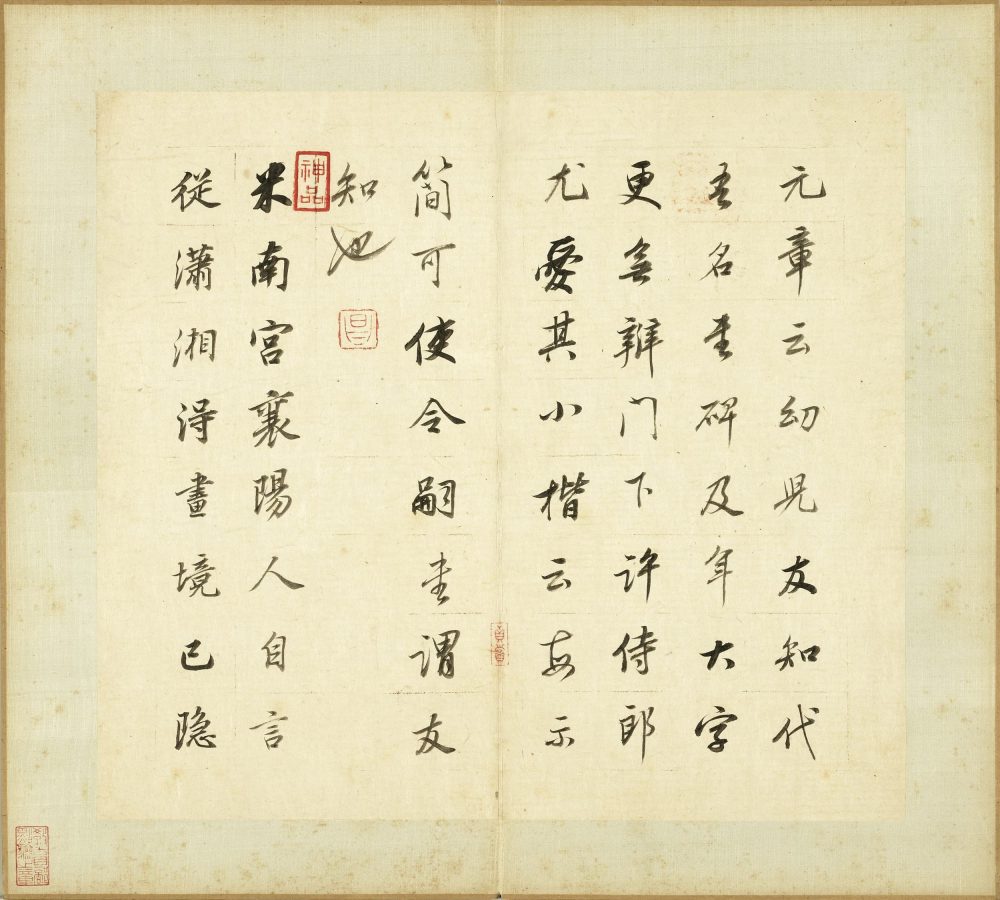 元章云幼兒友知代
吾名書碑及年大字
更無辨門下許侍郎
尤愛其小楷云每示
簡可使令嗣書謂友
知也
昌
神品
米南宮襄陽人自言
從瀟湘得畫境已隱